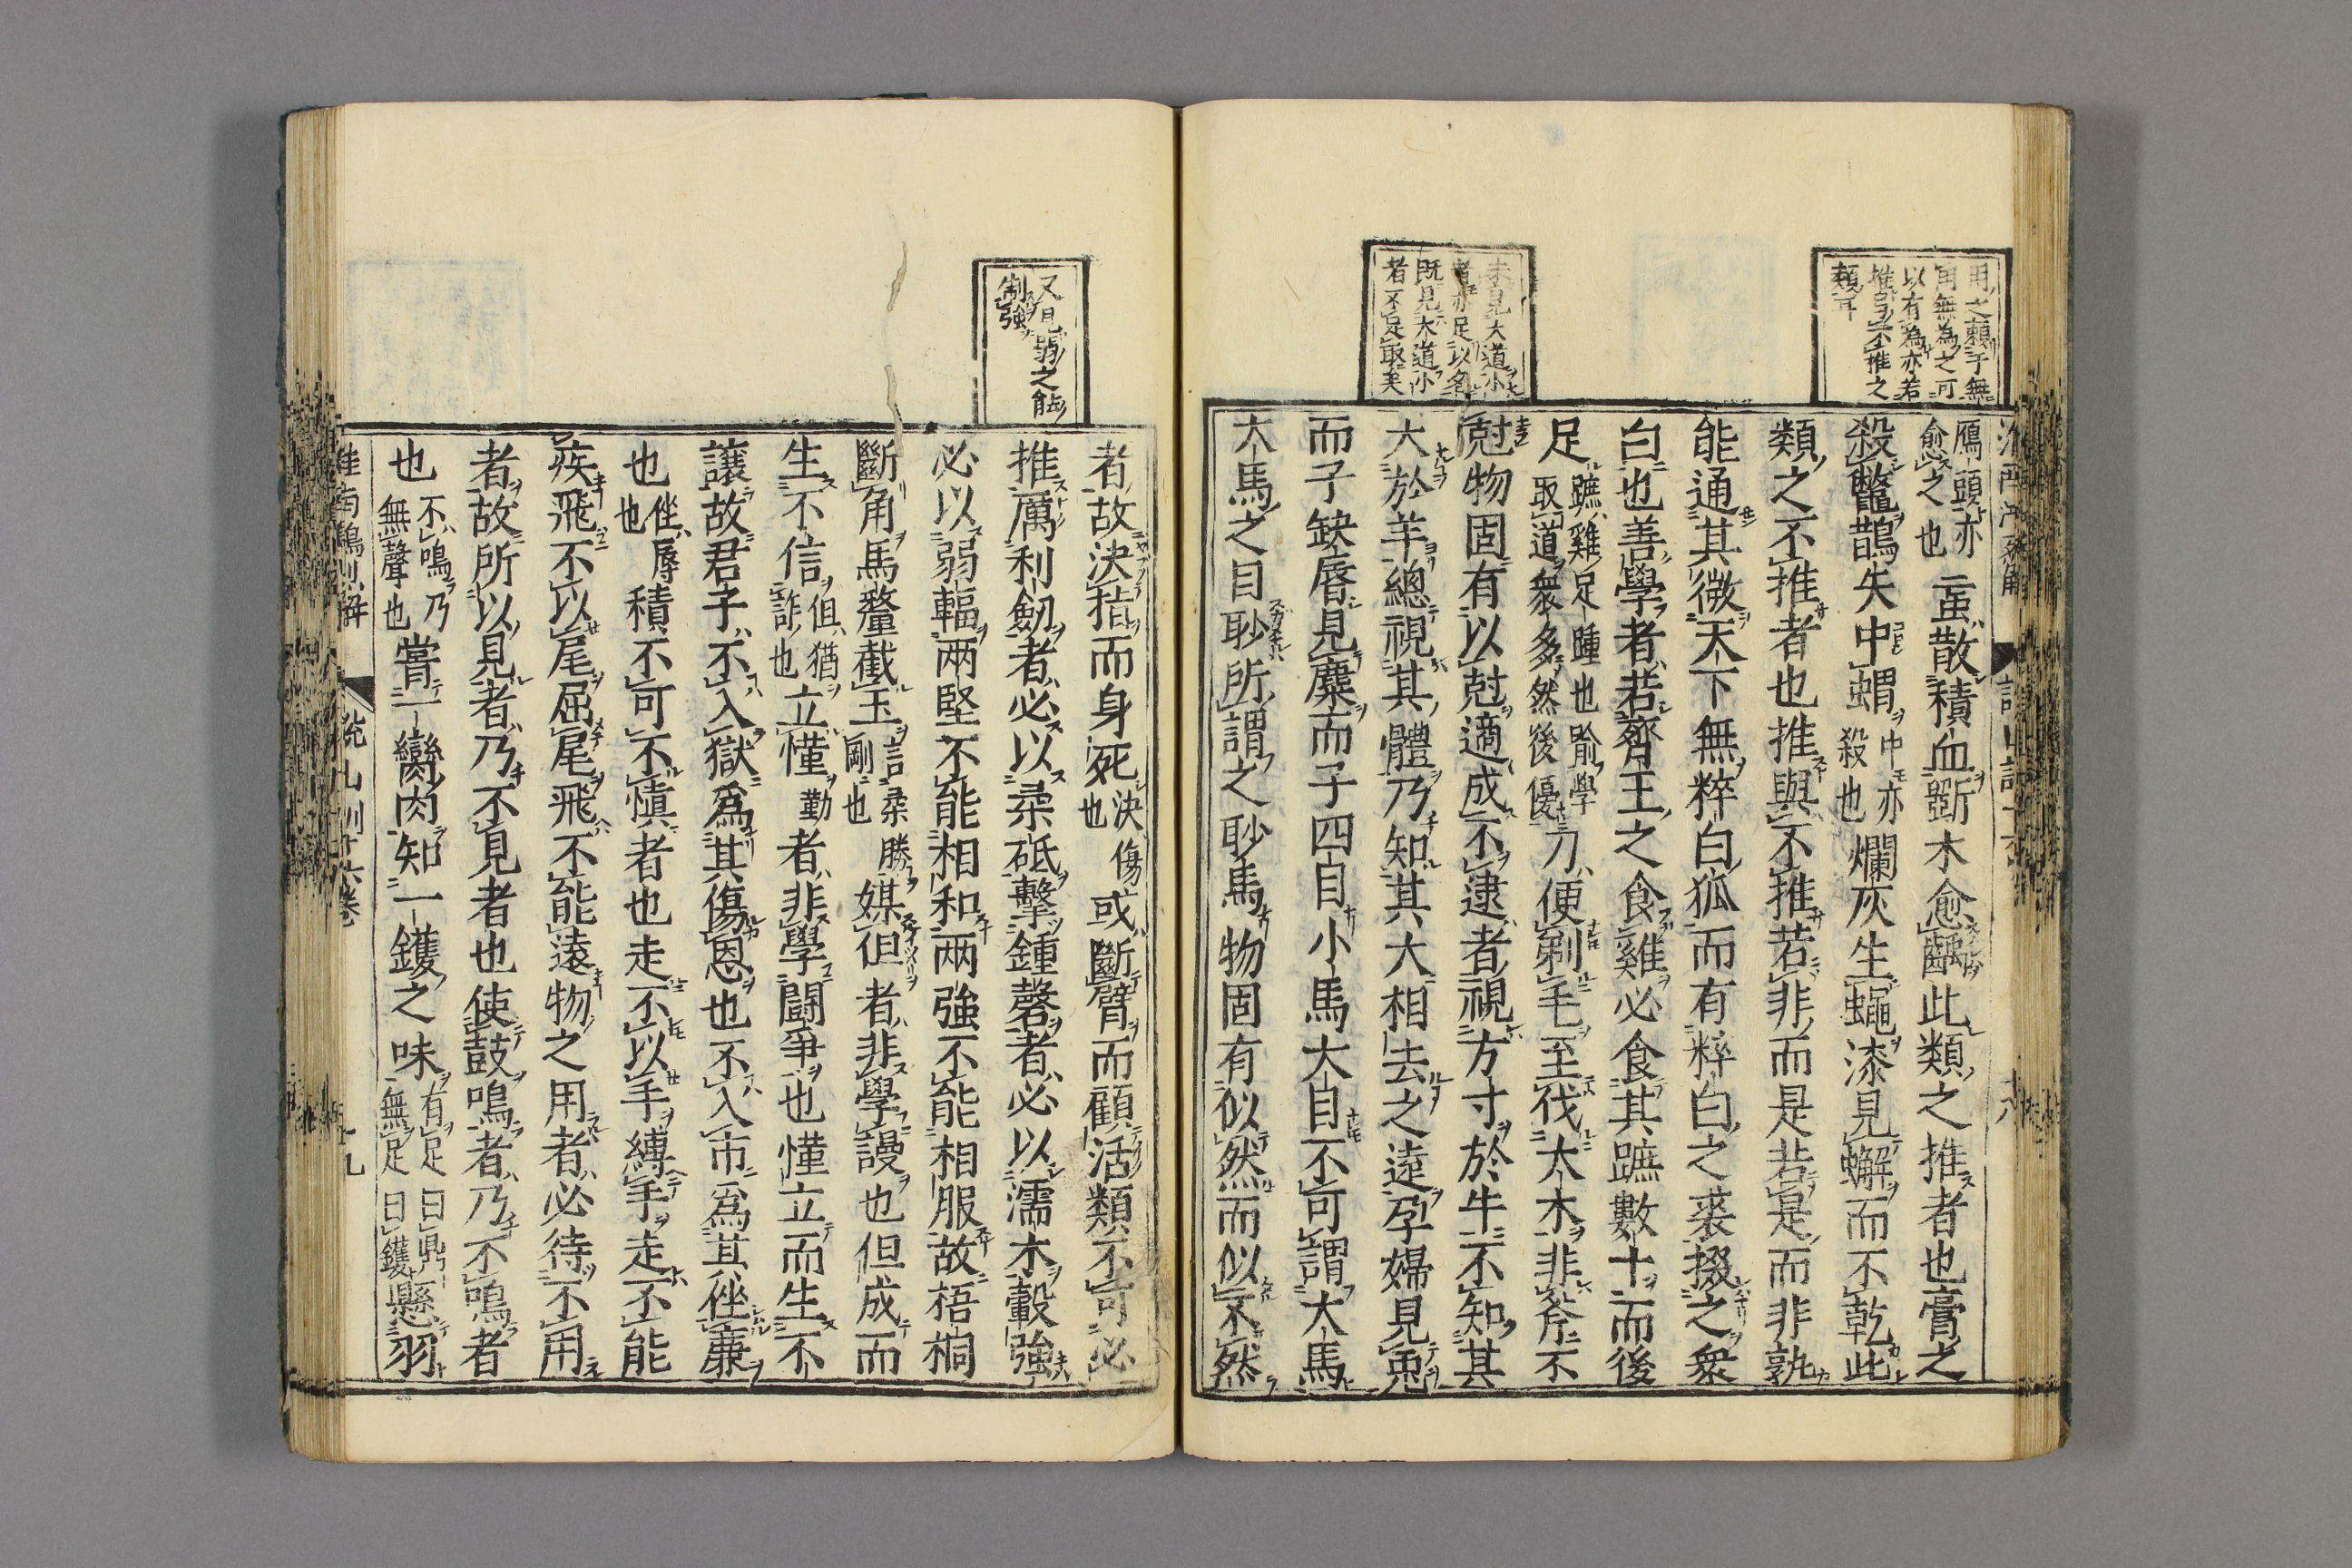 用之頼于無
用無為之可
以有為亦若
推與不推之
類耳
未見大道小
者亦足以名
既見大道小
者不足取矣
淮南鴻烈解
說山訓十六
十八
鴈頭亦
愈之也
䖟散積血斲木愈齲此類之推者也膏之
殺鼈鵲矢中蝟
中亦
殺也
爛灰生蠅漆見蠏而不乾此
類之不推者也推與不推若非而是若是而非孰
能通其微天下無粹白狐而有粹白之裘掇之衆
白也善學者若齊王之食雞必食其蹠數十而後
足
蹠雞足踵也喻學
取道衆多然後優
刀便剃毛至伐大木非斧不
尅物固有以尅適成不逮者視方寸於牛不知其
大於羊總視其體乃知其大相去之遠孕婦見兎
而子缺唇見麋而子四目小馬大目不可謂大馬
大馬之目眇所謂之眇馬物固有似然而似不然
又見弱之能
制強
者故決指而身死
決傷
也
或斷臂而顧活類不可必
推厲利劒者必以柔砥擊鍾磬者必以濡木轂強
必以弱輻兩堅不能相和兩強不能相服故梧桐
斷角馬氂截玉
言柔勝
剛也
媒但者非學謾也但成而
生不信
但猶
詐也
立慬
勤
者非學鬪爭也慬立而生不
讓故君子不入獄為其傷恩也不入市為其㑺廉
也
㑺辱
也
積不可不慎者也走不以手縛手走不能
疾飛不以尾屈尾飛不能遠物之用者必待不用
者故所以見者乃不見者也使鼓鳴者乃不鳴者
也
不鳴乃
無聲也
嘗一臠肉知一鑊之味
有足曰鼎
無足曰鑊
懸羽
淮南鴻烈解
說山訓十六卷
十九